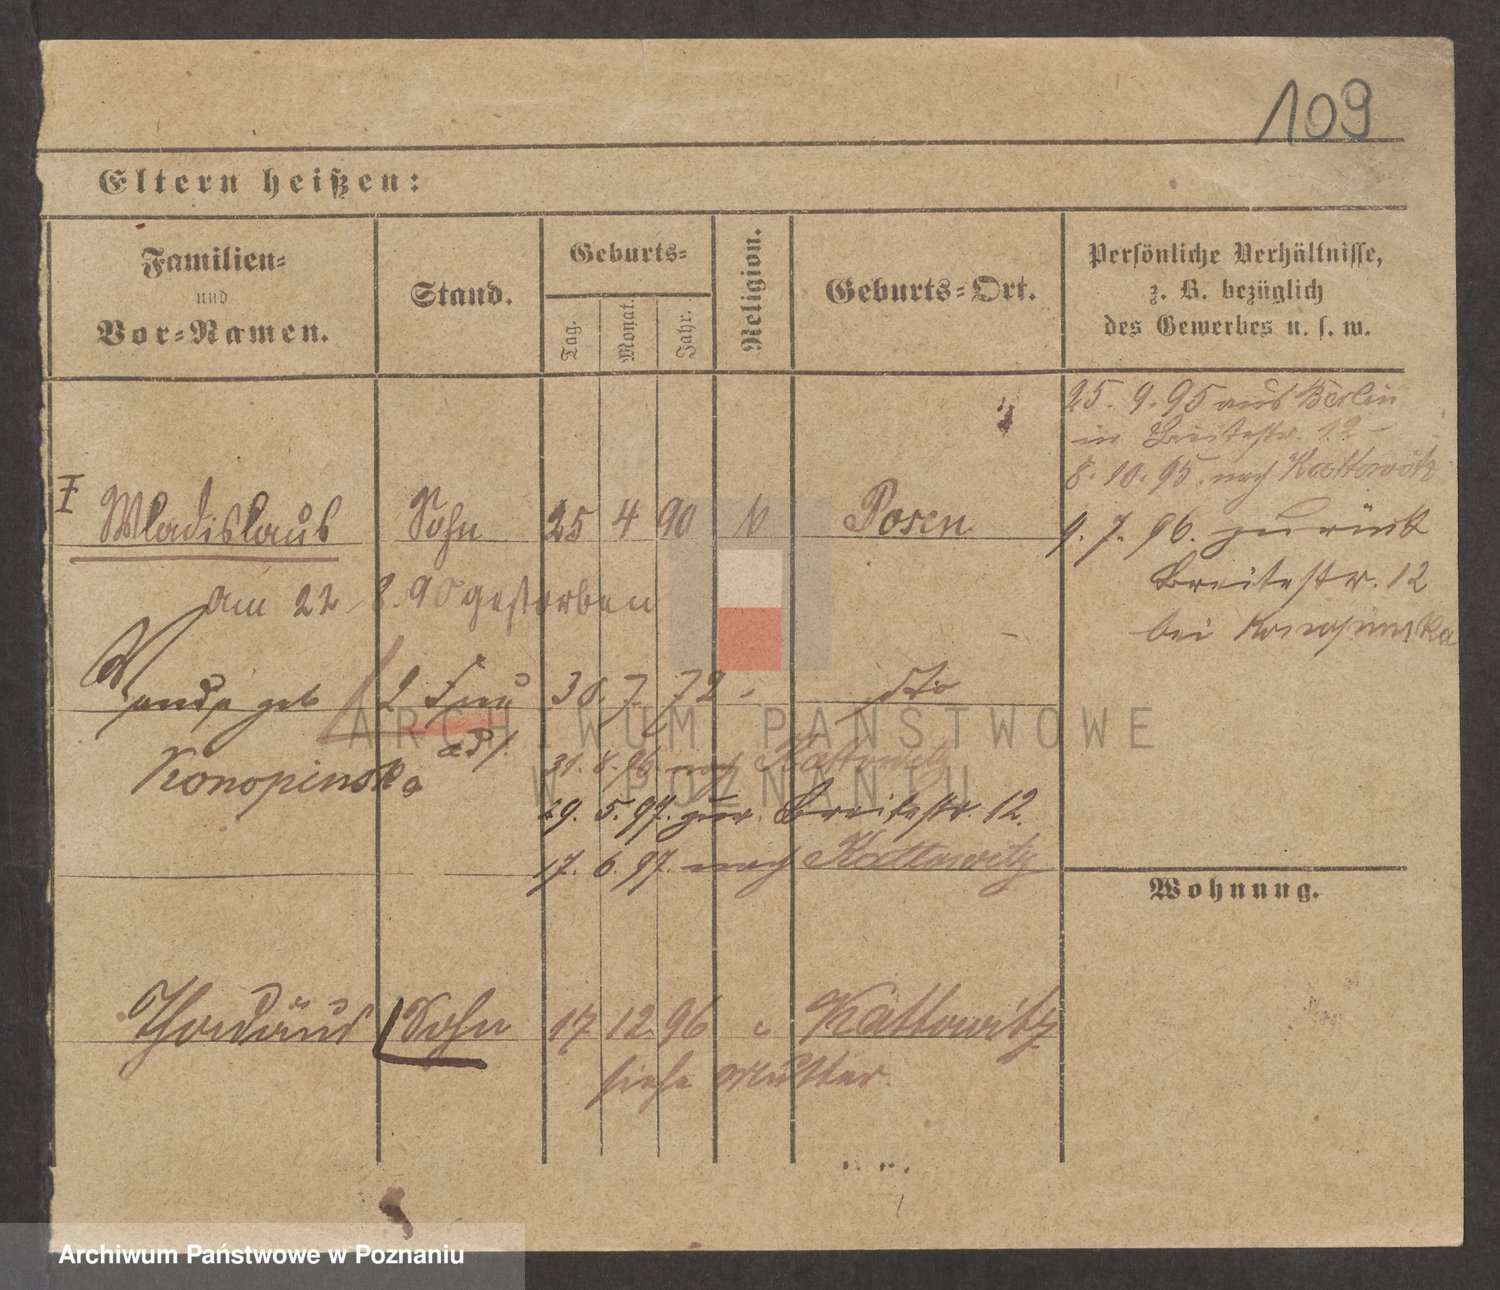 109
Eltern heißen:
Familien-
und
Vor-Namen.
Stand.
Geburts-
Tag.
Monat.
Jahr.
Religion.
Geburts-Ort.
Persönliche Verhältnisse,
z. B. bezüglich
des Gewerbes u. s. w.
25. 9. 95 aus Berlin
in Breitestr. 12
8. 10. 95. nach Kattowitz
9. 7. 96. zurück
Breitestr. 12
bei Konopinska
Wladislaus Sohn 25 4 90 Posen
am 22 8. 90 gestorben
geb 2 Frau 30. 7. 72 dto
Konopinska
31. 8. 96 nach Kattowitz
29. 5. 97. zur. Breitestr. 12.
17. 6. 97. nach Kattowitz
Wohnung.
Thadäus Sohn 17 12 96 Kattowitz
siehe Mutter
ARCHIWUM PAŃSTWOWE
W POZNANIU
Archiwum Państwowe w Poznaniu